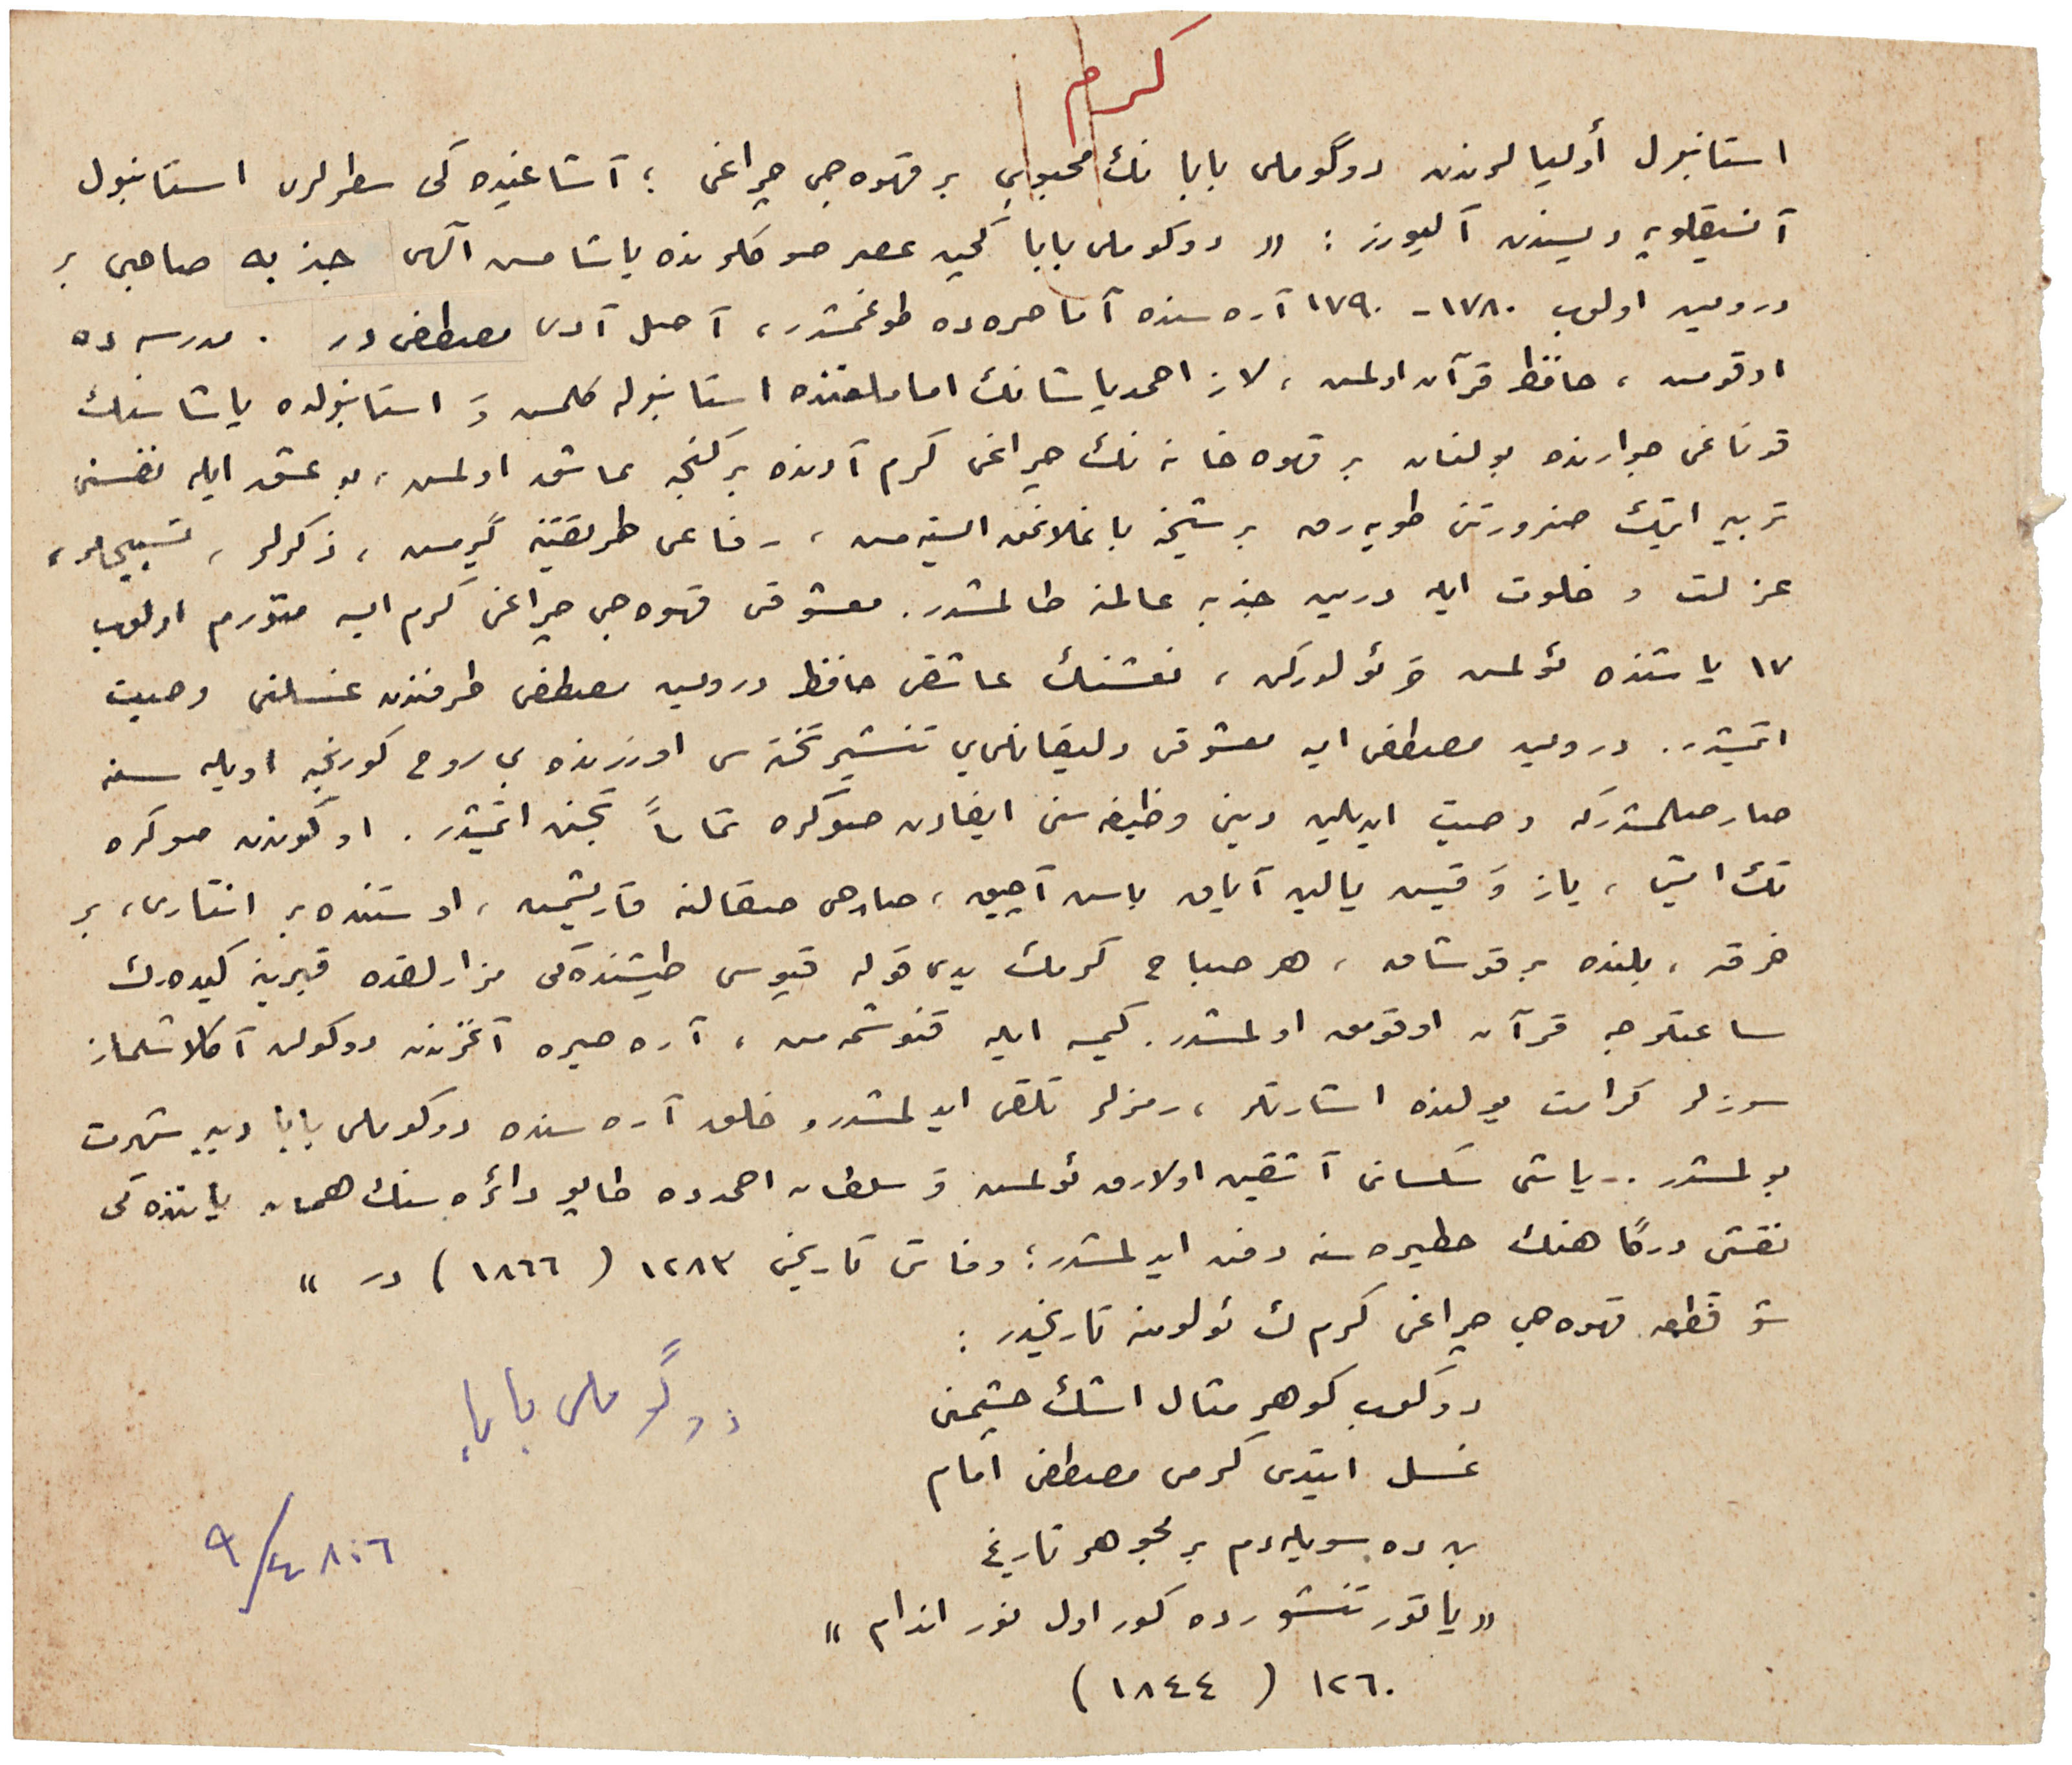 كرم
استانبول أولیالرندن دوگوملی بابا نك محبوبی بر قهوه جی چراغی ؛ آشاغیده کی سطرلری استانبول
آنسیقلوپه دیسیندن آلیورز : « دوکوملی بابا گچن عصر صوکلرنده یاشامش آلهی جذبه صاحبی بر
درویش اولوب ١٧٨٠ - ١٧٩٠ آره سنده آماصره ده طوغمشدر ، آصل آدی مصطفی در . مدرسه ده
اوقومش ، حافظ قرآن اولمش ، لاز احمد پاشا نك اماملغنده استانبوله کلمش و استانبولده پاشا سنك
قوناغی جوارنده بولنان بر قهوه خانه نك چراغی کرم آدنده بر کنجه عاشق اولمش ، بو عشق ایله نفسنی
تربیه ایتمك ضرورتنی طویه رق بر شیخه باغلانمق ایسته مش ، رفاعی طریقتنه گیرمش ، ذکرلر ، تسبیحلر ،
عزلت و خلوت ایله درین جذبه عالمنه طالمشدر . معشوقی قهوه جی چراغی کرم ایسه متورم اولوب
١٧ یاشنده ئولمش و ئولورکن ، نعشنك عاشقی حافظ درویش مصطفی طرفندن غسلنی وصیت
اتمیشدر . درویش مصطفی ایسه معشوقی دلیقانلی یی تنشیر تخته سی اوزرنده بی روح کورنجه اویله سنه
صارصلمشدرکه وصیت ایدیلین دینی وظیفه سنی ایفادن صوکره تماماً تجنن اتمیشدر . او کوندن صوکره
تك اتمش ، یاز و قیش یالین آیاق باش آچیق ، صاچی صقالنه قاریشمش ، اوستنده بر انتاری ، بر
خرقه ، بلنده بر قوشاق ، هر صباح کرمك یدی قوله قپوسی طیشنده کی مزارلقده قبرینه کیده رك
ساعتلرجه قرآن اوقومق اولمشدر . کیمسه ایله قنوشمه مش ، آره صیره آغزندن دوکولن آکلاشلماز
سوزلر کرامت یولنده اشارتلر ، رمزلر تلقی ایدلمشدر و خلق آره سنده دوکوملی بابا دییه شهرت
بولمشدر .. یاشی سکسانی آشقین اولارق ئولمش و سلطان احمدده طاپو دائره سنك همان یاننده کی
نقشی درگاهنك حظیره سنه دفن ایدلمشدر ؛ وفاتی تاریخی ١٢٨٣ ( ١٨٦٦ ) در »
شو قطعه قهوه جی چراغی کرم ك ئولومنه تاریخدر :
دوکوب کوهر مثال اشك چشمنی
غسل ایتدی کرمی مصطفی امام
بن ده سویله دم بر مجوهر تاریخ
« یاتور تنشورده کور اول نور اندام »
١٢٦٠ ( ١٨٤٤ )
دوگوملی بابا
٨٠٦ ٤/٩